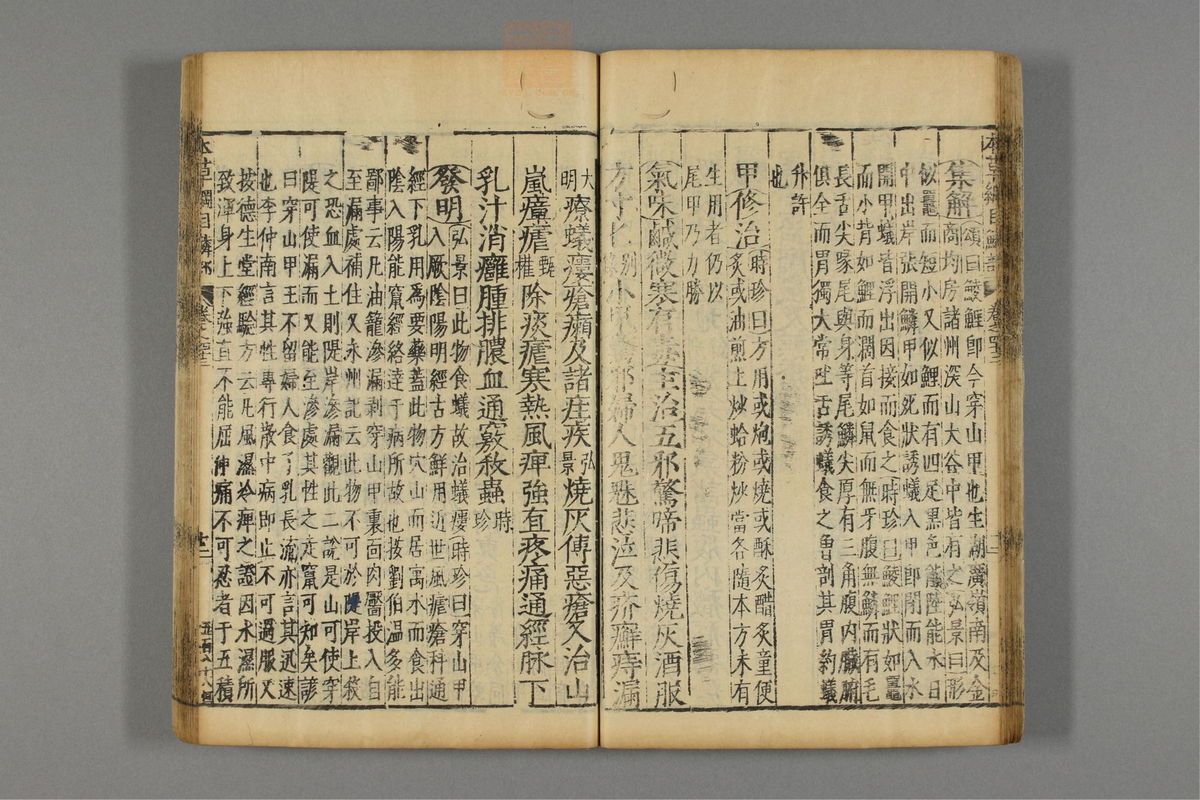 集解頌曰鯪鯉即今穿山甲也生湖廣嶺南及金
商均房諸州深山大谷中皆有之弘景曰形
似鼉而短小又似鯉而有四足黑色能陸能水日
中出岸張開鱗甲如死狀誘蟻入甲即閉而入水
開甲蟻皆浮出因接而食之時珍曰鯪鯉狀如鼉
而小背如鯉而濶首如鼠而無牙腹無鱗而有毛
長舌尖喙尾與身等尾鱗尖厚有三角腹内臟腑
俱全而胃獨大常吐舌誘蟻食之曾剖其胃約蟻
升許
也
甲修治時珍曰方用或炮或燒或酥炙醋炙童便
炙或油煎土炒蛤粉炒當各隨本方未有
生用者仍以
尾甲乃力勝
氣味鹹微寒有毒主治五邪驚啼悲傷燒灰酒服
方寸匕別錄小兒驚邪婦人鬼魅悲泣及疥癬痔漏
大明療蟻瘻瘡癩及諸疰疾弘景燒灰傅惡瘡又治山
嵐瘴瘧甄權除痰瘧寒熱風痺強直疼痛通經脉下
乳汁消癰腫排膿血通竅殺蟲時珍
發明弘景曰此物食蟻故治蟻瘻時珍曰穿山甲
入厥陰陽明經古方鮮用近世風瘧瘡科通
經下乳用爲要藥蓋此物穴山而居寓水而食出
陰入陽能竄經絡達于病所故也按劉伯温多能
鄙事云凡油籠滲漏剥穿山甲裏面肉靨投入自
至漏處補住又永州記云此物不可於隄岸上殺
之恐血入土則隄岸滲漏觀此二說是山可使穿
隄可使漏而又能至滲處其性之走竄可知矣諺
曰穿山甲王不留婦人食了乳長流亦言其迅速
也李仲南言其性專行散中病即止不可過服又
按德生堂經驗方云凡風濕冷痺之證因水濕所
致渾身上下強直不能屈伸痛不可忍者于五積
本草綱目鱗部
卷之四十三